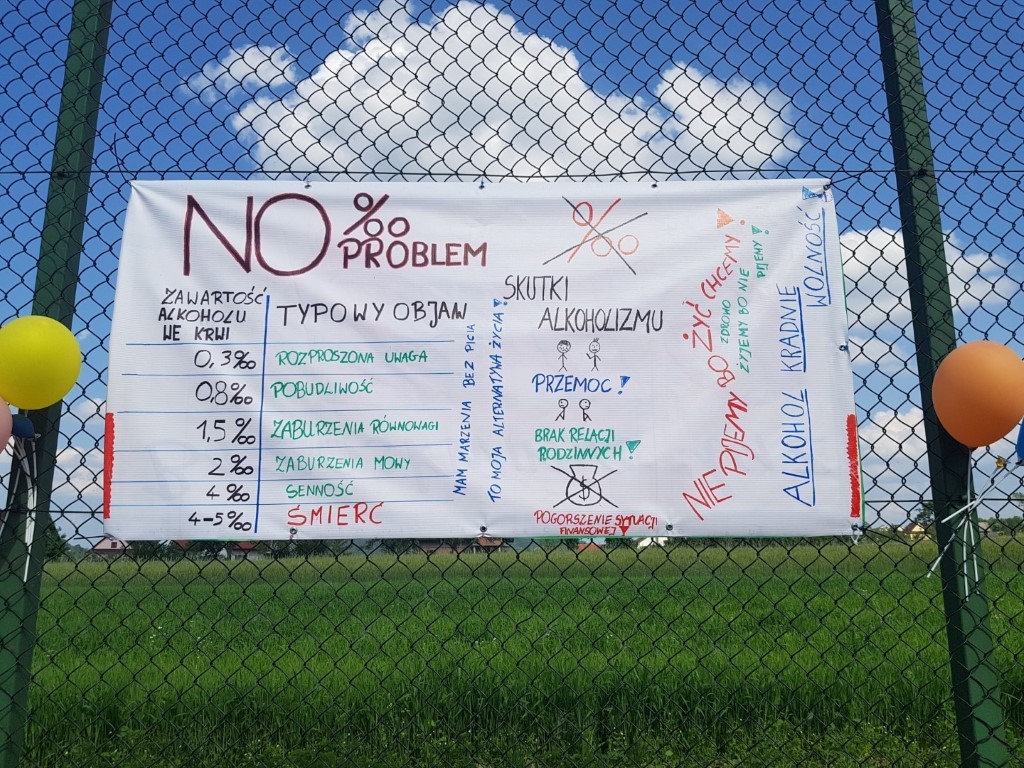 NO ‰
PROBLEM
ZAWARTOŚĆ
ALKOHOLU
WE KRWI
TYPOWY OBJAW
0,3‰ ROZPROSZONA UWAGA
0,8‰ POBUDLIWOŚĆ
1,5‰ ZABURZENIA RÓWNOWAGI
2‰ ZABURZENIA MOWY
4‰ SENNOŚĆ
4-5‰ ŚMIERĆ
MAM MARZENIA BEZ PICIA
TO MOJA ALTERNATYWA ŻYCIA!
‰
SKUTKI
ALKOHOLIZMU
PRZEMOC!
BRAK RELACJI
RODZINNYCH!
$
POGORSZENIE SYTUACJI
FINANSOWEJ!
NIE PIJEMY BO ŻYĆ CHCEMY!
ZDROWO
ŻYJEMY BO NIE
PIJEMY!
ALKOHOL KRADNIE
WOLNOŚĆ!